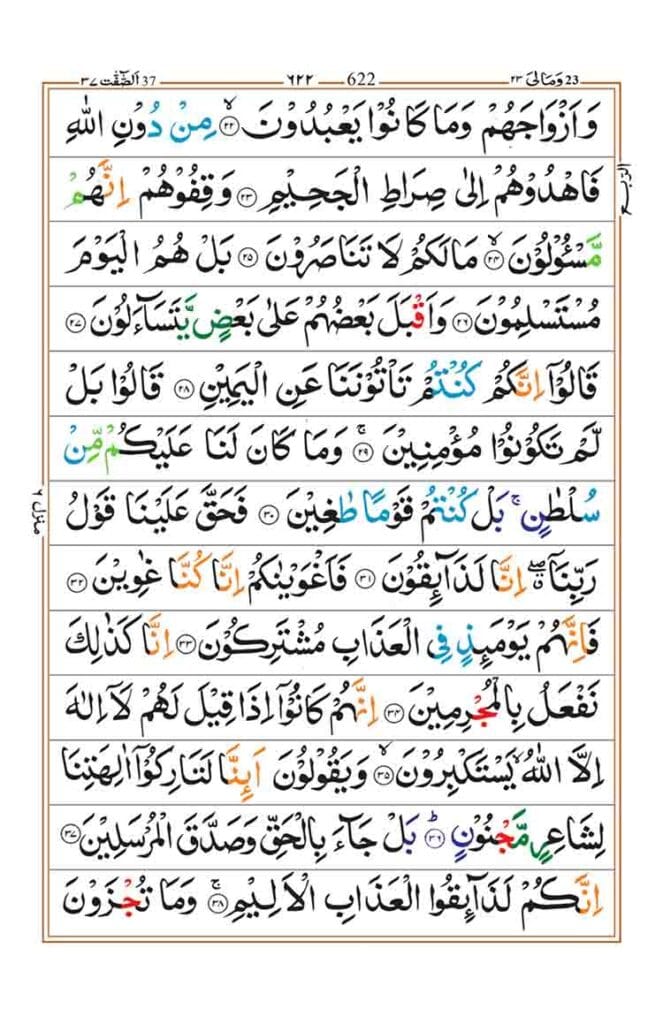 ٣٧ اَلصّٰٓفّٰت 37 ٦٢٢ 622 ٢٣ وَمَالِىَ 23
وَاَزْوَاجَهُمْ وَمَا كَانُوْا يَعْبُدُوْنَ ۙ‏﴿۲۲﴾ مِنْ دُوْنِ اللّٰهِ
فَاهْدُوْهُمْ اِلٰى صِرَاطِ الْجَحِيْمِ ﴿۲۳﴾ وَقِفُوْهُمْ اِنَّهُمْ
الربع
مَّسْئُوْلُوْنَ ۙ‏﴿۲۴﴾ مَا لَكُمْ لَا تَنَاصَرُوْنَ ﴿۲۵﴾ بَلْ هُمُ الْيَوْمَ
مُسْتَسْلِمُوْنَ ﴿۲۶﴾ وَاَقْبَلَ بَعْضُهُمْ عَلٰى بَعْضٍ يَّتَسَآءَلُوْنَ ﴿۲۷﴾
قَالُوْۤا اِنَّكُمْ كُنْتُمْ تَاْتُوْنَنَا عَنِ الْيَمِيْنِ ﴿۲۸﴾ قَالُوْا بَلْ
لَّمْ تَكُوْنُوْا مُؤْمِنِيْنَ ۚ‏﴿۲۹﴾ وَمَا كَانَ لَنَا عَلَيْكُمْ مِّنْ
سُلْطٰنٍ ۚ بَلْ كُنْتُمْ قَوْمًا طٰغِيْنَ ﴿۳۰﴾ فَحَقَّ عَلَيْنَا قَوْلُ
منزل ٦
رَبِّنَاۤ ۖ اِنَّا لَذَآئِقُوْنَ ﴿۳۱﴾ فَاَغْوَيْنٰكُمْ اِنَّا كُنَّا غٰوِيْنَ ﴿۳۲﴾
فَاِنَّهُمْ يَوْمَئِذٍ فِى الْعَذَابِ مُشْتَرِكُوْنَ ﴿۳۳﴾ اِنَّا كَذٰلِكَ
نَفْعَلُ بِالْمُجْرِمِيْنَ ﴿۳۴﴾ اِنَّهُمْ كَانُوْۤا اِذَا قِيْلَ لَهُمْ لَاۤ اِلٰهَ
اِلَّا اللّٰهُ ۙ يَسْتَكْبِرُوْنَ ۙ‏﴿۳۵﴾ وَيَقُوْلُوْنَ اَئِنَّا لَتَارِكُوْۤا اٰلِهَتِنَا
لِشَاعِرٍ مَّجْنُوْنٍ ؕ‏﴿۳۶﴾ بَلْ جَآءَ بِالْحَقِّ وَصَدَّقَ الْمُرْسَلِيْنَ ﴿۳۷﴾
اِنَّكُمْ لَذَآئِقُوا الْعَذَابِ الْاَلِيْمِ ۚ‏﴿۳۸﴾ وَمَا تُجْزَوْنَ